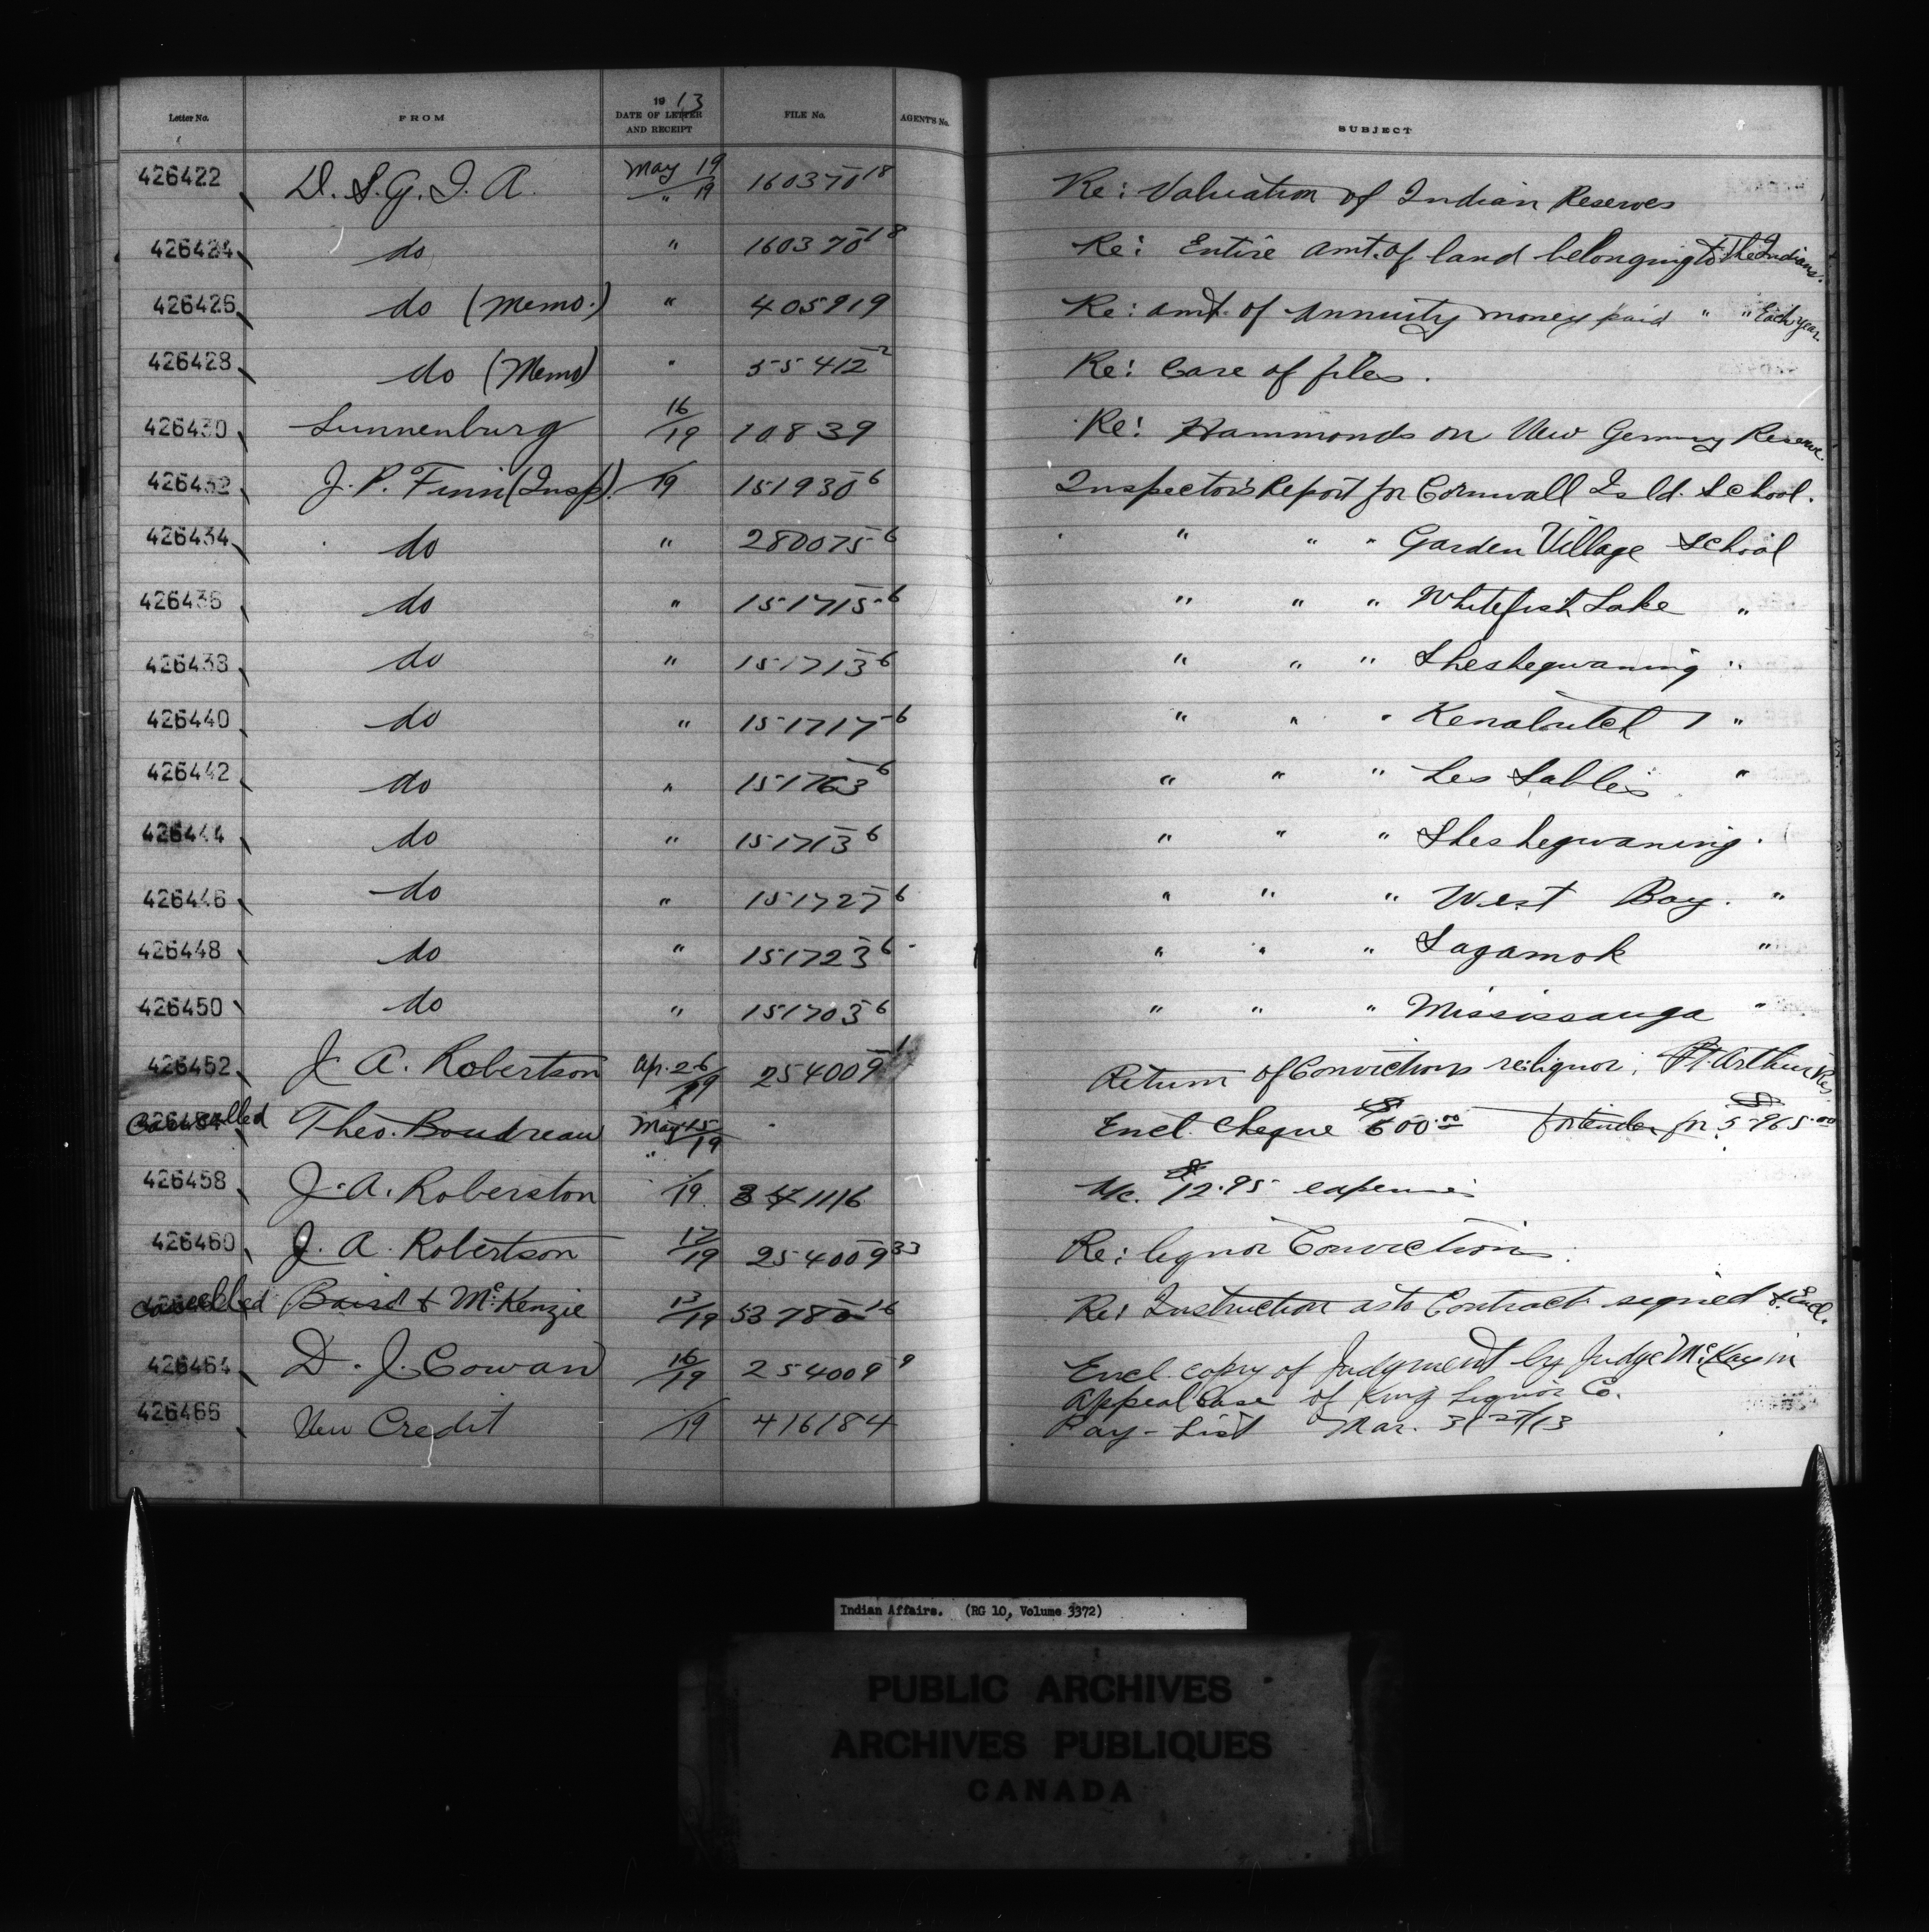 Letter No. FROM 1913 DATE OF LETTER AND RECEIPT FILE No. AGENT'S No. SUBJECT
426422 D. S. G. I. A. May 19/" 19 160370-18 Re: Valuation of Indian Reserves
426424 do " 160370-18 Re: Entire amt. of land belonging to The Indians.
426426 do (Memo.) " 405919 Re: amt. of Annuity money paid " " Each year.
426428 do (Memo) " 55412-2 Re: Care of files.
426430 Lunnenburg 16/19 10839 Re: Hammonds on New Germny Reserve.
426432 J. P. Finn (Insp). /19 151930-6 Inspector's Report for Cornwall Isld. School.
426434 do " 280075-6 " " " Garden Village School
426436 do " 151715-6 " " " Whitefish Lake "
426438 do " 151713-6 " " " Sheshegwaning "
426440 do " 151717-6 " " " Kenabutch "
426442 do " 151763-6 " " " Les Sables "
426444 do " 151713-6 " " " Sheshegwaning.
426446 do " 151727-6 " " " West Bay. "
426448 do " 151723-6 " " " Sagamok "
426450 do " 151703-6 " " " Mississauga "
426452 J. A. Robertson Ap. 26/19 254009-1 Return of Convictions re: liquor, Pt. Arthur Res
Cancelled Theo. Boudreau May 15/" 19 Encl. Cheque $600.00 for tender for $5965.00
426458 J. A. Roberston /19 341116 A/c. $12.95 expenses
426460 J. A. Robertson 17/19 254009-33 Re: liquor Convictions.
Cancelled Baird & McKenzie 13/19 53780-16 Re: Instruction as to Contract signed & Encl.
426464 D. J. Cowan 16/19 254009-9 Encl. copy of Judgment by Judge McKay in
Appeal Case of King Liquor Co.
426466 New Credit /19 416184 Pay-List Mar. 31st/13
Indian Affairs. (RG 10, Volume 3372)
PUBLIC ARCHIVES
ARCHIVES PUBLIQUES
CANADA